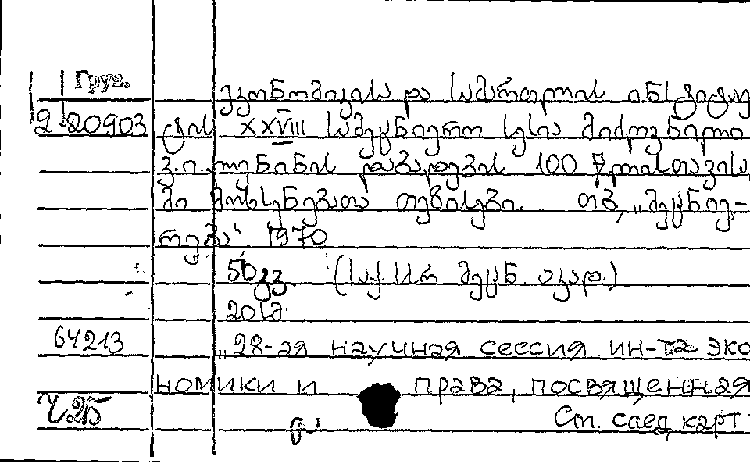 Груз.
ეკონომიკისა და სამართლის ინსტიტუ
2-20903 ტის XXVIII სამეცნიერო სესია მიძღვნილი
ვ. ი. ლენინის დაბადების 100 წლისთავისა
მი მოხსენებათა თეზისები. თბ, „მეცნიე-
რება“ 1970
50გვ. (საქ. სსრ მეცნ. აკად.)
64213 „28-ая научная сессия ин-та эко
номики и права, посвященная
Ст. след карт